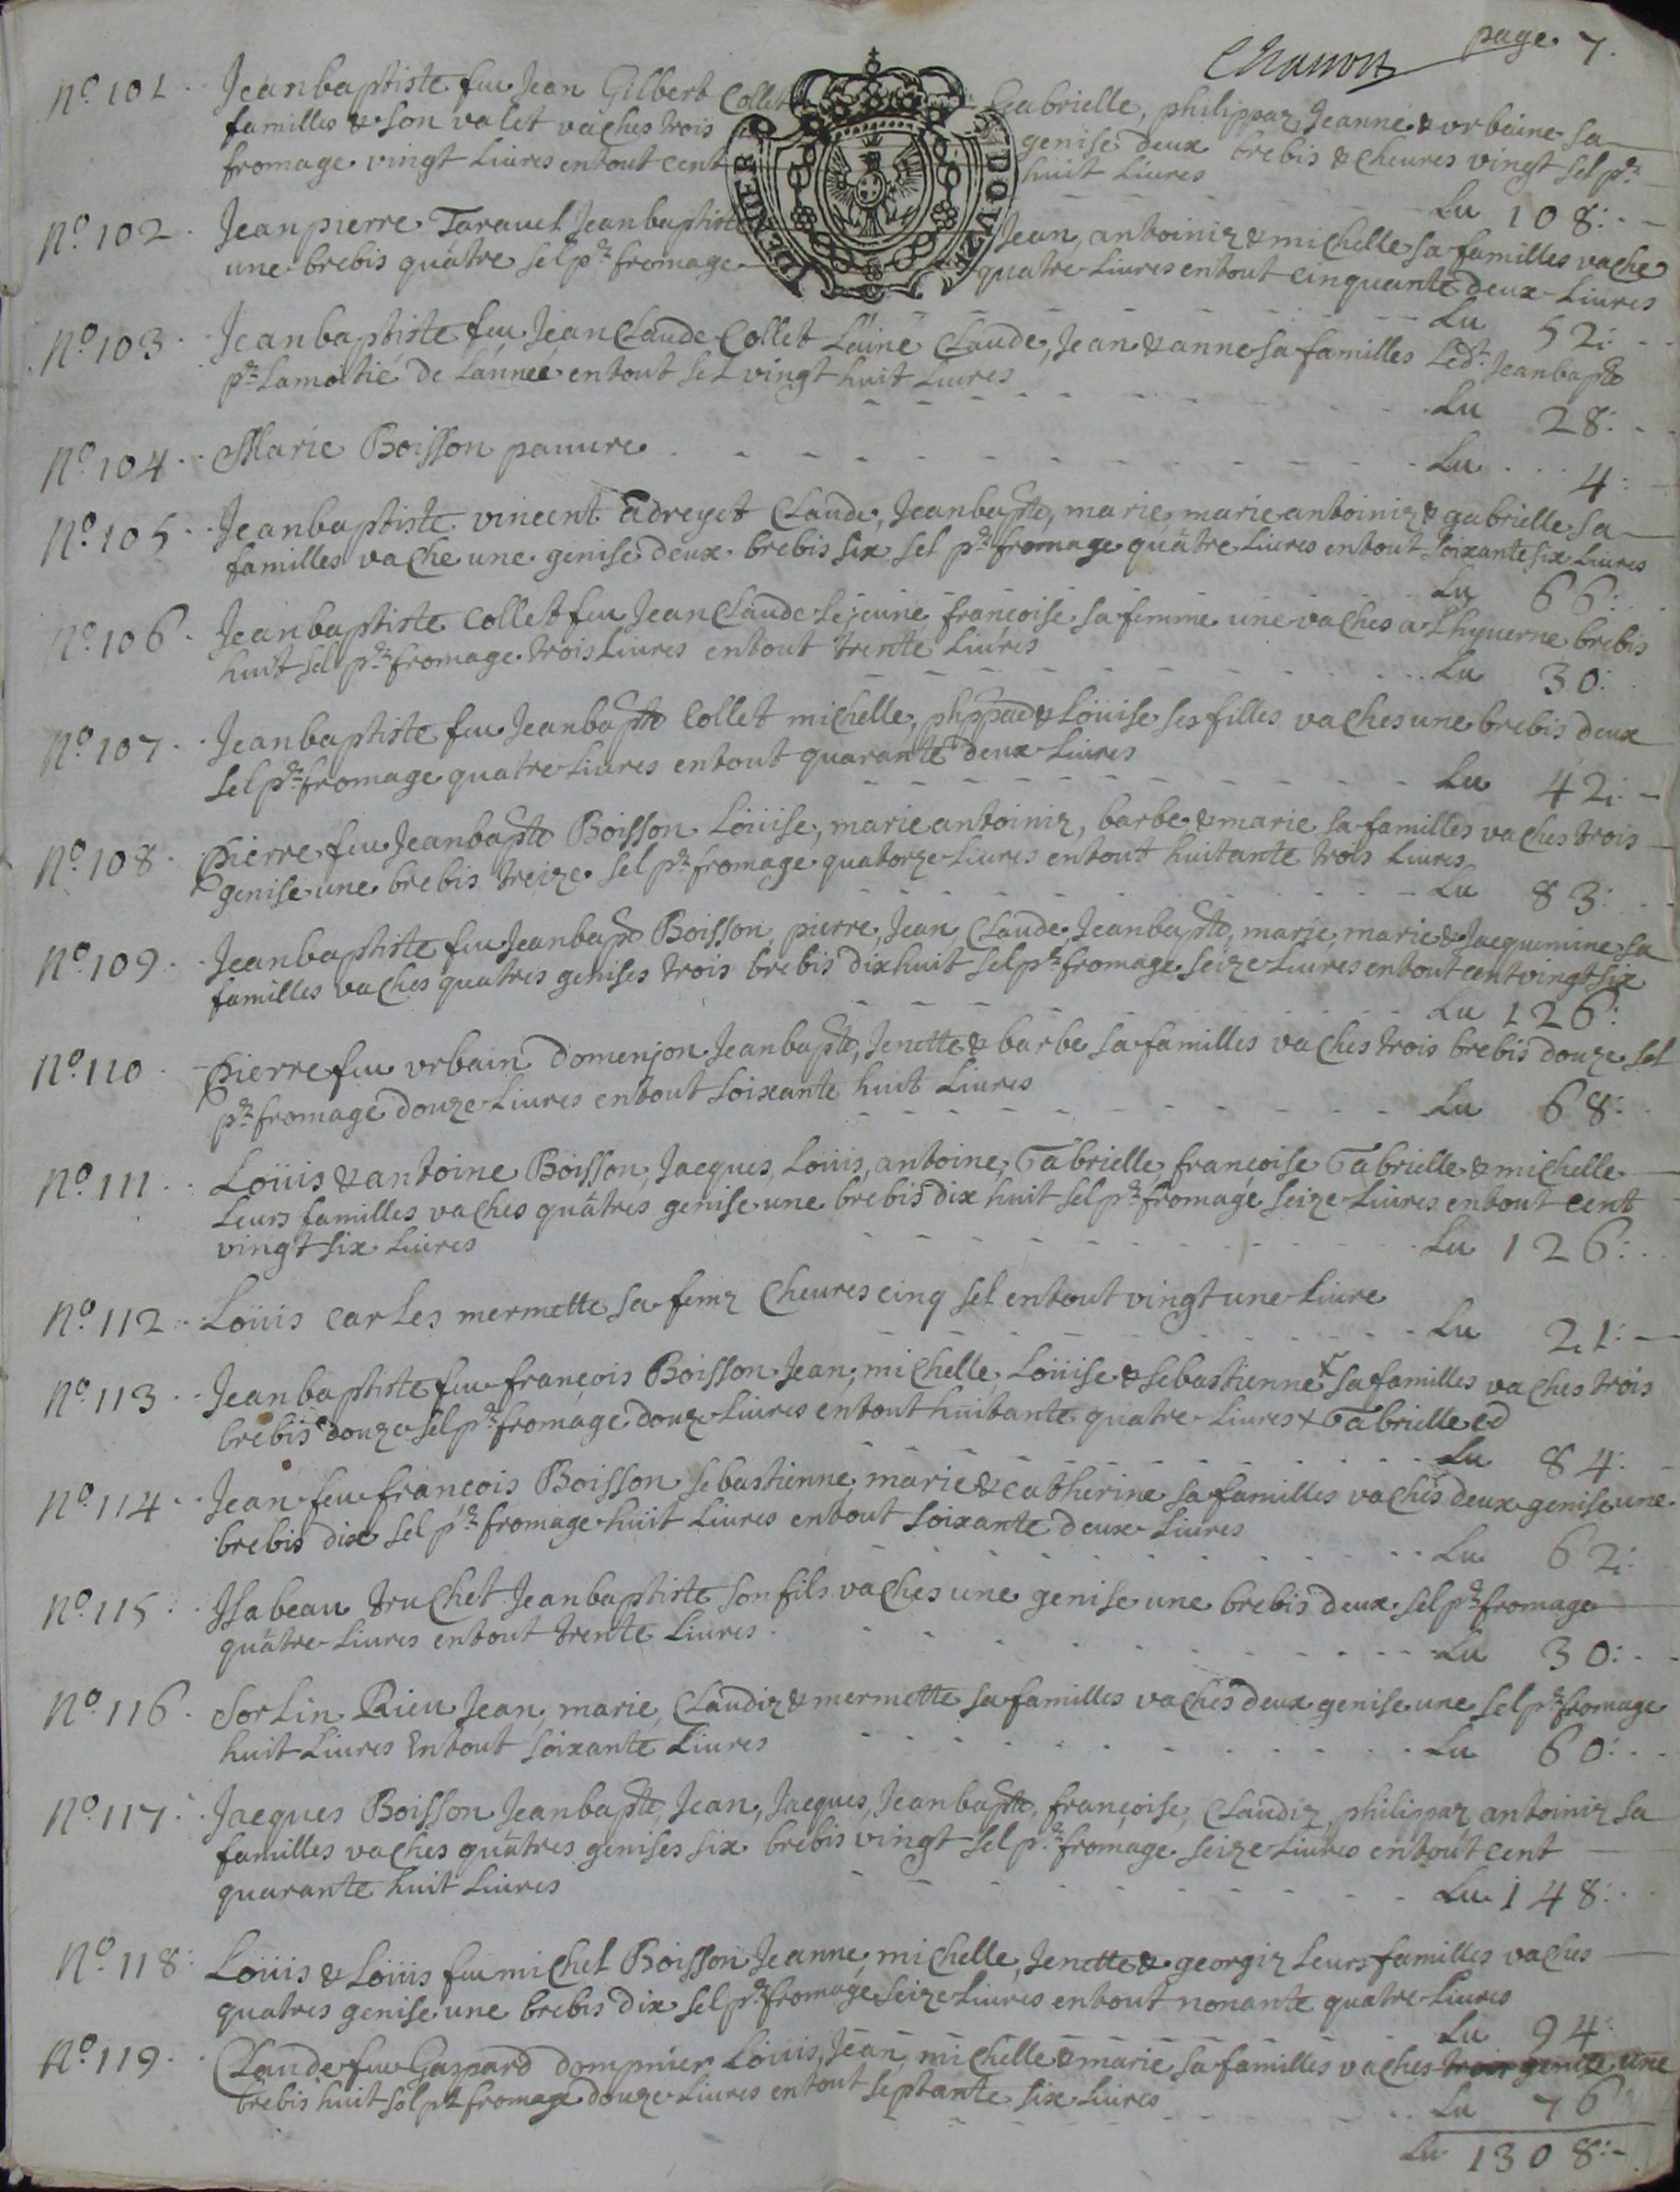 page. 7.
Chamott
N.º 101 · Jeanbaptiste feu Jean Gilbert Collet Gabrielle, philippaz, Jeanne & vrbaine sa
familles & son valet vaches trois genise deux brebis & cheures vingt sel p.r
fromage vingt Liures entout cent huit Liures
Lu 108: -
N.º 102 · Jeanpierre Tarauel Jeanbaptiste Jean, antoiniz & michelle sa familles vache
une brebis quâtre sel p.r fromage quatre Liures entout cinquante deux Liures
Lu 52: -
DENIER DOVZAI
N.º 103 · Jeanbaptiste feu Jean Claude Collet Lainé Claude, Jean & anne sa familles Led.t Jeanbapte
p.r Lamoitié de Lannée entout sel vingt huit Liures
Lu 28: -
N.º 104 · Marie Boisson pauure Lu 4: -
N.º 105 · Jeanbaptiste vincent adreyet Claude, Jeanbapte, marie, marie antoiniz & gabrielle sa
familles vache une genise deux brebis six sel p.r fromage quâtre Liures entout soixante six Liures
Lu 66:
N.º 106 · Jeanbaptiste Collet feu Jean Claude Le jeune françoise sa femme une vaches a Lhyuerne brebis
huit sel p.r fromage trois Liures entout trente Liures
Lu 30:
N.º 107 · Jeanbaptiste feu Jeanbapte Collet michelle, phppaz & Loüise ses filles vaches une brebis deux
sel p.r fromage quatre Liures entout quarante deux Liures
Lu 42: -
N.º 108 · Pierre feu Jeanbapte Boisson Loüise, marie antoiniz, barbe & marie sa familles vaches trois
genise une brebis treize sel p.r fromage quatorze Liures entout huitante trois Liures
Lu 83:
N.º 109 · Jeanbaptiste feu Jeanbapte Boisson pierre, Jean, Claude Jeanbapte, marie, marie & Jacquemine sa
familles vaches quatres genises trois brebis dixhuit sel p.r fromage seize Liures entout cent vingt six
Lu 126:
N.º 110 · Pierre feu vrbain Domenjon Jeanbapte, Jenette & barbe sa familles vaches trois brebis douze sel
p.r fromage douze Liures entout soixante huit Liures
Lu 68:
N.º 111 · Loüis & antoine Boisson, Jacques, Loüis, antoine, Gabrielle, françoise Gabrielle & michelle
Leurs familles vaches quâtres genise une brebis dix huit sel p.r fromage seize Liures entout cent
vingt six Liures
Lu 126:
N.º 112 · Loüis carles mermette sa femz Cheures cinq sel entout vingt une Liure
Lu 21: -
N.º 113 · Jeanbaptiste feu françois Boisson Jean, michelle, Loüise & sebastienne + sa familles vaches trois
brebis douze sel p.r fromage douze Liures entout huitante quatre Liures + Gabrielle
Lu 84:
N.º 114 · Jean feu françois Boisson sebastienne, marie & catherine sa familles vaches deux genise une
brebis dix sel p.r fromage huit Liures entout soixante deux Liures
Lu 62:
N.º 115 · Jsabeau truchet Jeanbaptiste son fils vaches une genise une brebis deux sel p.r fromage
quâtre Liures entout trente Liures
Lu 30: -
N.º 116 · Sorlin Rieu Jean, marie, Claudiz & mermette sa familles vaches deux genise une sel p.r fromage
huit Liures Entout soixante Liures
Lu 60:
N.º 117 · Jacques Boisson Jeanbapte, Jean, Jacques, Jeanbapte, françoise, Claudiz, philippaz, antoiniz sa
familles vaches quâtres genises six brebis vingt sel p.r fromage seize Liures entout cent
quarante huit Liures
Lu 148:
N.º 118 · Loüis & Loüis feu michel Boisson Jeanne, michelle, Jenette & georgiz Leurs familles vaches
quatres genise une brebis dix sel p.r fromage seize Liures entout nonante quatre Liures
Lu 94:
N.º 119 · Claude feu Gaspard dompnier Louis, Jean, michelle & marie sa familles vaches trois genise une
brebis huit sel p.r fromage douze Liures entout septante six Liures
Lu 76
Lu 1308: -